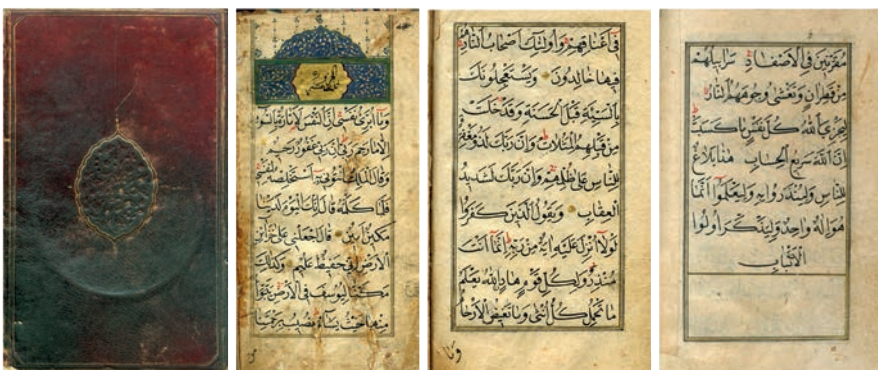 وَمَا أُبَرِّئُ نَفْسِي إِنَّ النَّفْسَ لَأَمَّارَةٌ بِالسُّوءِ
إِلَّا مَا رَحِمَ رَبِّي إِنَّ رَبِّي غَفُورٌ رَحِيمٌ
وَقَالَ الْمَلِكُ ائْتُونِي بِهِ أَسْتَخْلِصْهُ لِنَفْسِي
فَلَمَّا كَلَّمَهُ قَالَ إِنَّكَ الْيَوْمَ لَدَيْنَا
مَكِينٌ أَمِينٌ قَالَ اجْعَلْنِي عَلَى خَزَائِنِ
الْأَرْضِ إِنِّي حَفِيظٌ عَلِيمٌ وَكَذَلِكَ
مَكَّنَّا لِيُوسُفَ فِي الْأَرْضِ يَتَبَوَّأُ
مِنْهَا حَيْثُ يَشَاءُ نُصِيبُ بِرَحْمَتِنَا
من
فِي أَعْنَاقِهِمْ وَأُولَئِكَ أَصْحَابُ النَّارِ هُمْ
فِيهَا خَالِدُونَ وَيَسْتَعْجِلُونَكَ
بِالسَّيِّئَةِ قَبْلَ الْحَسَنَةِ وَقَدْ خَلَتْ
مِنْ قَبْلِهِمُ الْمَثُلَاتُ وَإِنَّ رَبَّكَ لَذُو مَغْفِرَةٍ
لِلنَّاسِ عَلَى ظُلْمِهِمْ وَإِنَّ رَبَّكَ لَشَدِيدُ
الْعِقَابِ وَيَقُولُ الَّذِينَ كَفَرُوا
لَوْلَا أُنْزِلَ عَلَيْهِ آيَةٌ مِنْ رَبِّهِ إِنَّمَا أَنْتَ
مُنْذِرٌ وَلِكُلِّ قَوْمٍ هَادٍ اللَّهُ يَعْلَمُ
مَا تَحْمِلُ كُلُّ أُنْثَى وَمَا تَغِيضُ الْأَرْحَامُ
وَمَا
مُقَرَّنِينَ فِي الْأَصْفَادِ سَرَابِيلُهُمْ
مِنْ قَطِرَانٍ وَتَغْشَى وُجُوهَهُمُ النَّارُ
لِيَجْزِيَ اللَّهُ كُلَّ نَفْسٍ مَا كَسَبَتْ
إِنَّ اللَّهَ سَرِيعُ الْحِسَابِ هَذَا بَلَاغٌ
لِلنَّاسِ وَلِيُنْذَرُوا بِهِ وَلِيَعْلَمُوا أَنَّمَا
هُوَ إِلَهٌ وَاحِدٌ وَلِيَذَّكَّرَ أُولُوا
الْأَلْبَابِ